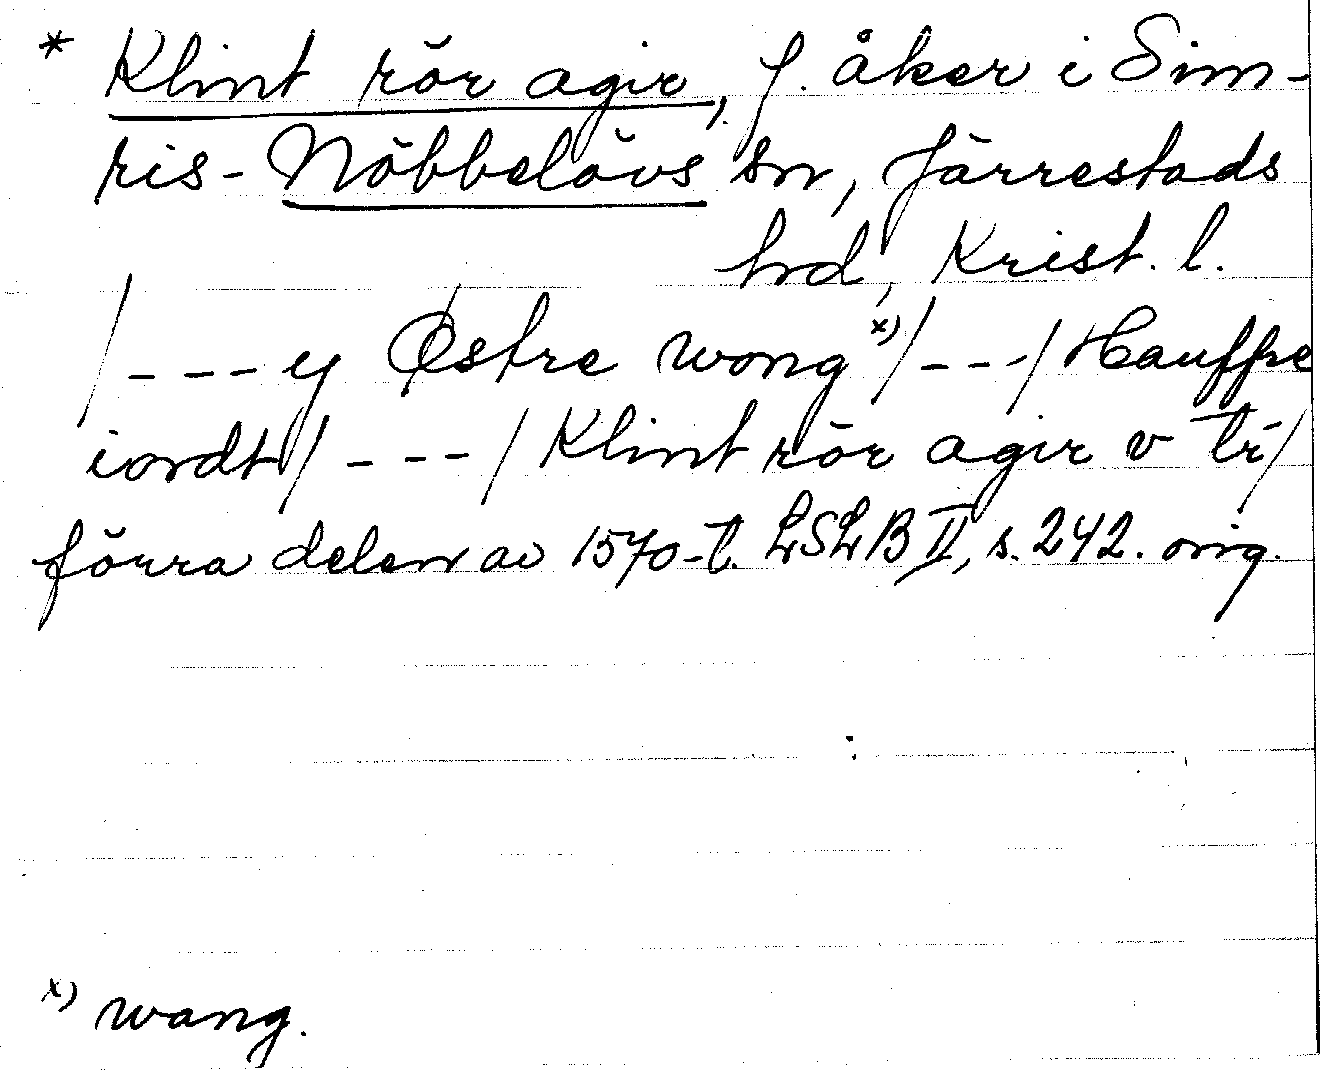 * Klint rör agir, f. åker i Sim-
ris-Nöbbelövs sn, Järrestads
hrd, Krist. l.
/---y Østre wong x)/---/Hauffre
iordt/---/Klint rör agir v tr/
förra delen av 1570-t. LSLB II, s. 242. orig.
x) wang.